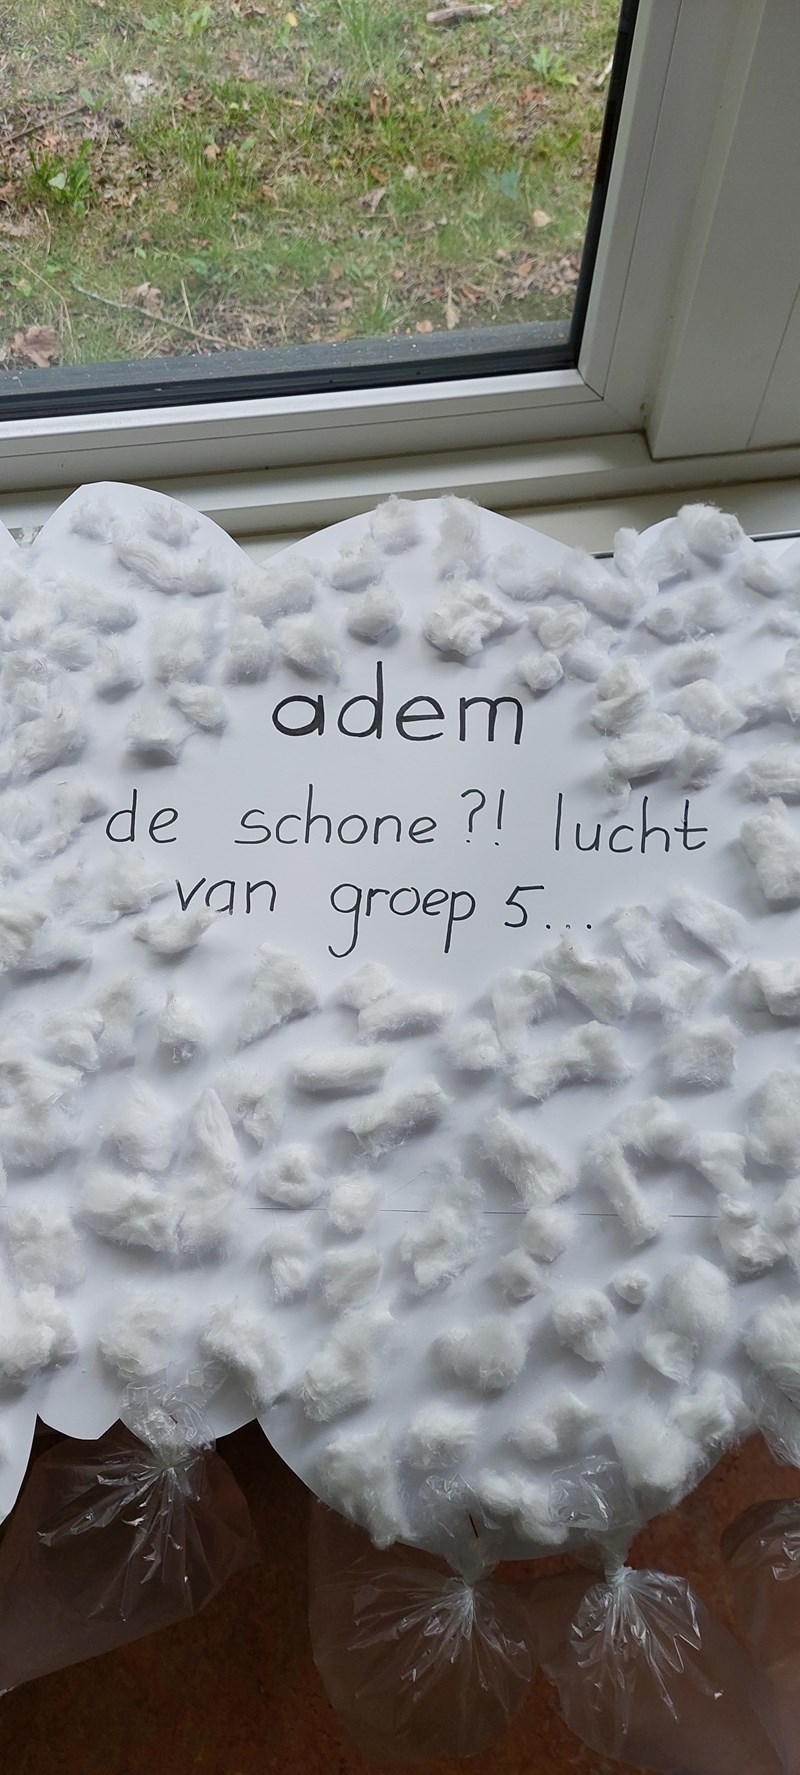 adem
de schone?! lucht
van groep 5...